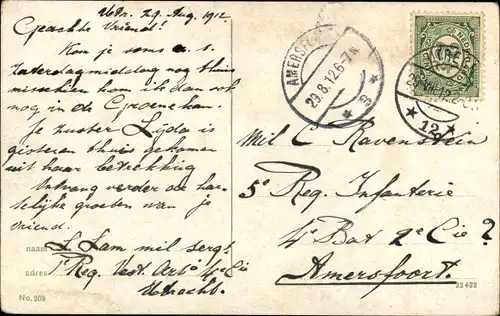 Utr. 29 Aug. 1912.
Geachte Vriend!
Kon je soms a. s.
Zaterdagmiddag nog thuis
misschien kom ik dan ook
nog in de Groenekan.
Je zuster Lijda is
gisteren thuis gekomen
uit haar betrekking
Ontvang verder de har-
telijke groeten van je
vriend.
naam L. Lam mil. serg.
adres 1e Reg. Vest. Arte 4e Cie
Utrecht.
No. 205
AMERSFOORT
29.8.12.6-7N
12
Mil C Ravenstein
5e Reg. Infanterie
4e Bat 2e Cie?
Amersfoort.
22422